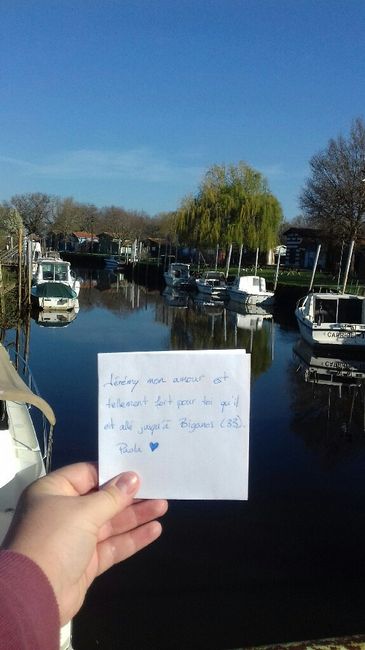 Jérémy mon amour est
tellement fort pour toi qu'il
est allé jusqu'à Biganos (33).
Paola ♥